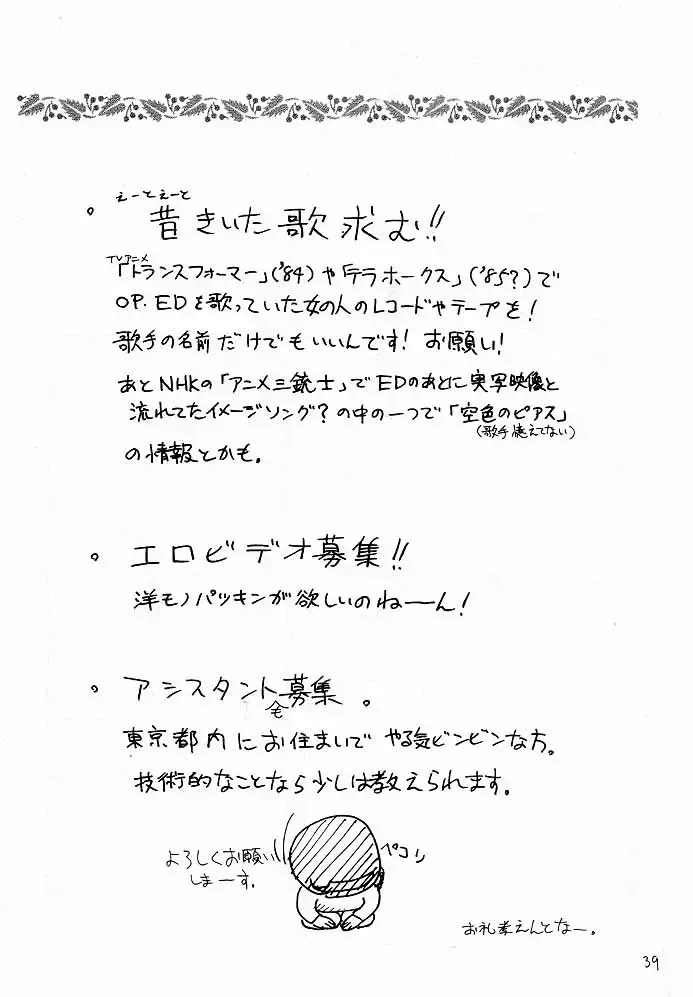 えーとえーと
。昔きいた歌求む!!
TVアニメ
「トランスフォーマー」('84)や「テラホークス」('85?)で
OP.EDを歌っていた女の人のレコードやテープを!
歌手の名前だけでもいいんです! お願い!
あとNHKの「アニメ三銃士」でEDのあとに実写映像と
流れてたイメージソング?の中の一つで「空色のピアス」
(歌手憶えてない)
の情報とかも。
。エロビデオ募集!!
洋モノパツキンが欲しいのねーーん!
。アシスタント募集。
東京都内にお住まいで やる気ビンビンな方。
技術的なことなら少しは教えられます。
よろしくお願い
しまーす。
ペコリ
お礼考えんとなー。
39